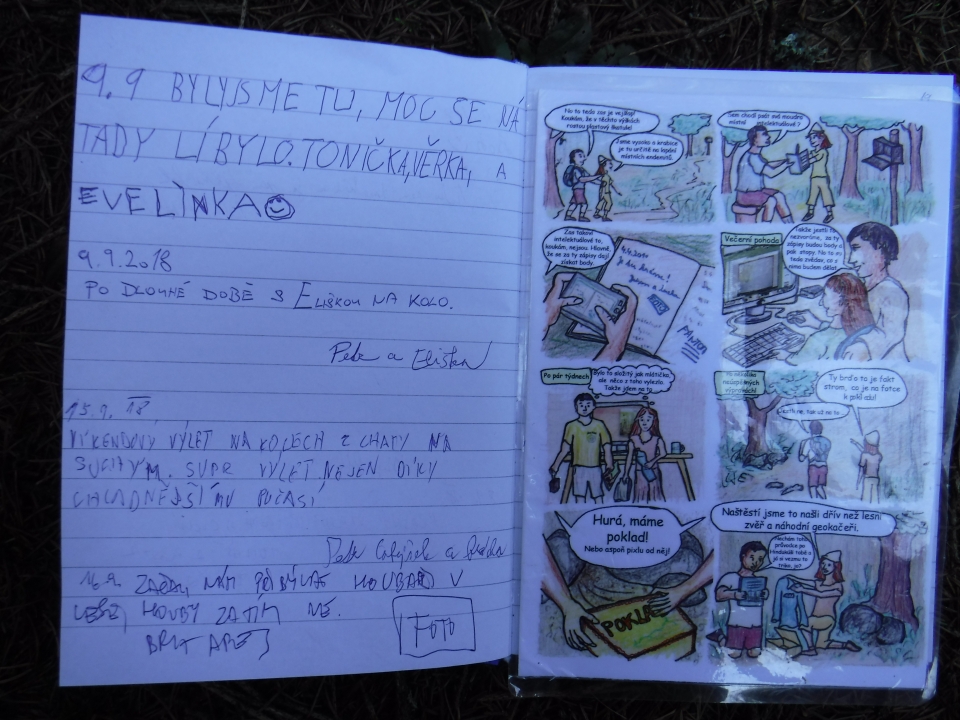 9.9 BYLYJSME TU, MOC SE NÁ
TADY LÍBYLO. TONIČKA, VĚRKA, A
EVELÌNKA
9.9.2018
PO DLOUHÉ DOBĚ S ELIŠKOU NA KOLO.
Petr a Eliška
15.9. 18
VÍKENDOVÝ VÝLET NA KOLECH Z CHATY NA
SUPR VÝLET NEJEN DÍKY
CHLADNĚJŠÍMU POČASÍ
Petr a
16.9. NÁM PŘIBÝVAT HOUBAŘŮ V
LESE, HOUBY ZATÍM NE.
FOTO
No to teda zas je vejšlap!
Koukám, že v těchto výškách
rostou plastový škatule!
Jsme vysoko a krabice
je tu určitě na lapání
místních endemitů.
Sem chodí psát svá moudra
místní intelektuálové?
Zas takoví
intelektuálové to,
koukám, nejsou. Hlavně,
že se za ty zápisy dají
získat body.
Večerní pohoda
Takže jestli to
nezvoráme, za ty
zápisy budou body a
pak stopy. No to su
teda zvědav, co s
nima budem dělat!
Po pár týdnech
Bylo to složitý jak mlátička,
ale něco z toho vylezlo.
Takže jdem na to.
Po několika
neúspěšných
výpravách!
Ty brďo to je fakt
strom, co je na fotce
k pokladu!
Hurá, máme
poklad!
Nebo aspoň pixlu od něj!
POKLAD
Naštěstí jsme to našli dřív než lesní
zvěř a náhodní geokačeři.
Nechám toho
průvodce po
Hindukúši tobě a
já si vezmu to
triko, jo?